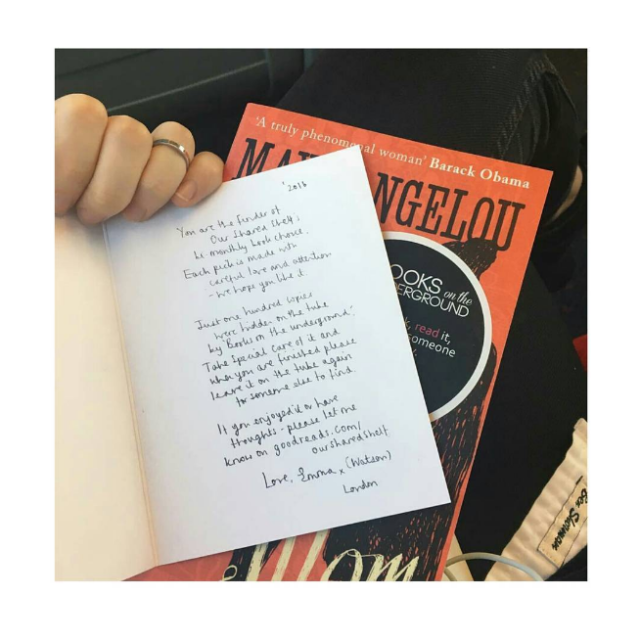 'A truly phenomenal woman' Barack Obama
MA ANGELOU
OOKS on the
ERGROUND
read it,
someone
Mom
'2016
You are the finder of
Our Shared Shelf's
bi-monthly book choice.
Each pick is made with
careful love and attention
- we hope you like it.
Just one hundred copies
were hidden on the tube
by 'Books on the underground'.
Take special care of it and
when you are finished please
leave it on the tube again
for someone else to find
If you enjoyed it or have
thoughts - please let me
know on goodreads.com/
oursharedshelf
Love, Emma x (Watson)
London